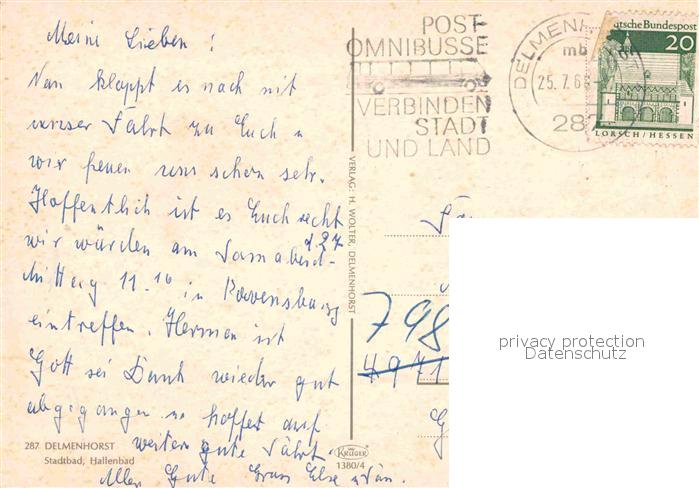 Meine Lieben!
Nun klappt es noch mit
unser Fahrt zu Euch u
wir freuen uns schon sehr.
Hoffentlich ist es Euch recht
wir würden am Sonnabend-
d. 27
Mittag 11.10 in Ravensburg
eintreffen. Herman ist
Gott sei Dank wieder gut
abgegangen u hoffet auf
weitere gute Fahrt.
Alles Gute Eure Else u
287 DELMENHORST
Stadtbad, Hallenbad
VERLAG: H. WOLTER, DELMENHORST
KRÜGER
1380/4
POST
OMNIBUSSE
VERBINDEN
STADT
UND LAND
DELMENH
mb
25.7.6
28
utsche Bundespost
20
LORSCH/HESSEN
798
4971
privacy protection
Datenschutz